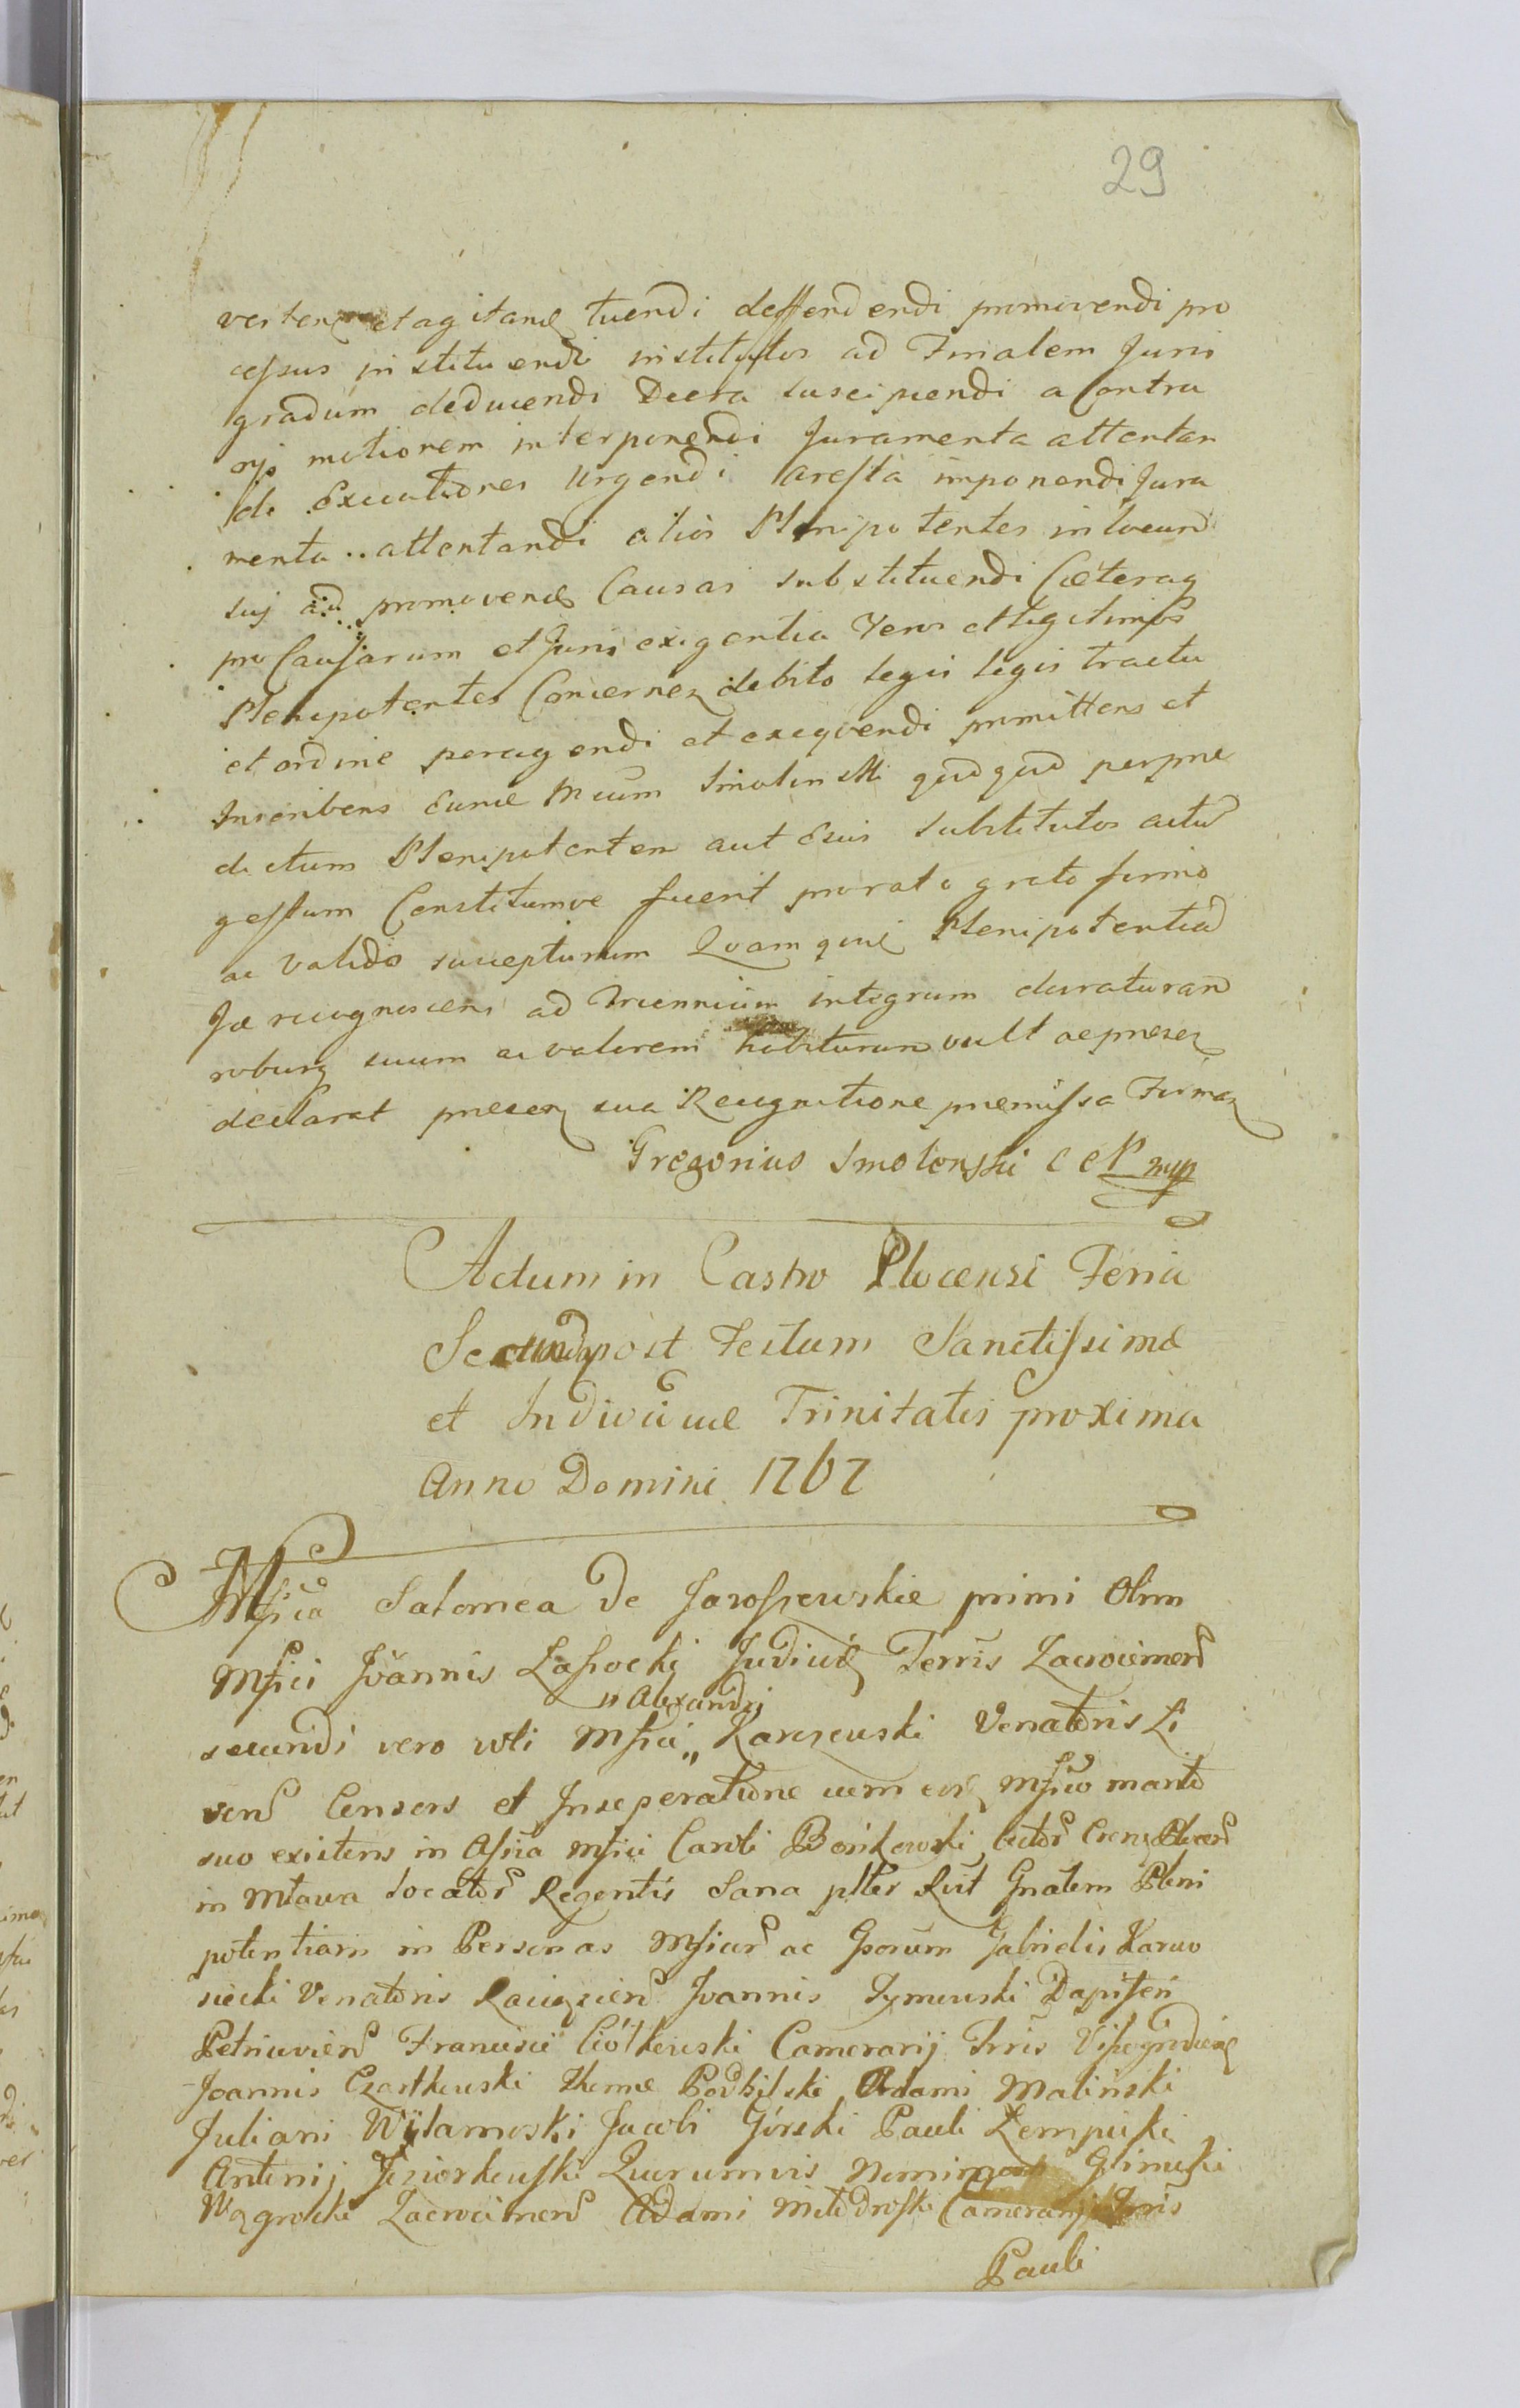 29
vertenᶻ et agitandᶻ tuendi deffendendi promovendi pro
cessus instituendi institutos ad Finalem Juris
gradum deducendi Decra suscipiendi a Contra
rys motionem interponendi Juramenta attentan
di Executiones Urgendi Aresta imponendi Jura
menta attentandi alios Plenipotentes in locum
suj ad promovendᶻ Causas substituendi Cæteraq
pro Causarum et Juris exigentia Veros et legitimos
Plenipotentes Concernenᶻ debito legis legis tractu
et ordine peragendi et exeqvendi promittens et
Inscribens Eundē Mcum Smolinski qdqd per præ
dictum Plenipotentem aut Ejus Substitutos actū
gestum Constitumve fuerit pro rato grato firmo
ac valido suscepturum Qvam quidē Plenipotentiā
Jæ recognoscens ad Triennium integrum duraturam
roburq suum ac valorem habituram vult ac præsenᶻ
declarat præsenᶻ sua Recognitione præmissa Firmanᶻ
Gregorius Smolenski C C P mp
Actum in Castro Plocensi Feria
Secunda post Festum Sanctissimæ
et Individuæ Trinitatis proxima
Anno Domini 1767
Mfica Salomea de Jaroszewskie primi Olim
Mfici Joannis Lasocki Judicis Terris Zacrocimen
secundi vero voti Mfici „ Karczewski Venatoris Li
„ Alexandri
ven Consors et Inseperatione cum eod Mfico marito
suo existens in Assia Mfici Caroli Bońkowski Actor Cren Plocen
in Mława locator Regentis Sana plter Rect Gnalem Pleni
potentiam in Personas Mficor ac Gsorum Gabrielis Karwo
siecki Venatoris Raciązien Joannis Tymowski Dapiferi
Petricovien Francisci Ciółkowski Camerarij Trris Vissogrodien
Joannis Czartkowski Thomæ Podbilski Adami Maliński
Juliani Wilamowski Jacobi Górski Pauli Zempicki
Antonij Jeziorkowski Quorumvis Nominom Glinicki
Wągrocki Zacrocimen Adami Młodroski Camerarij Trris
Pauli